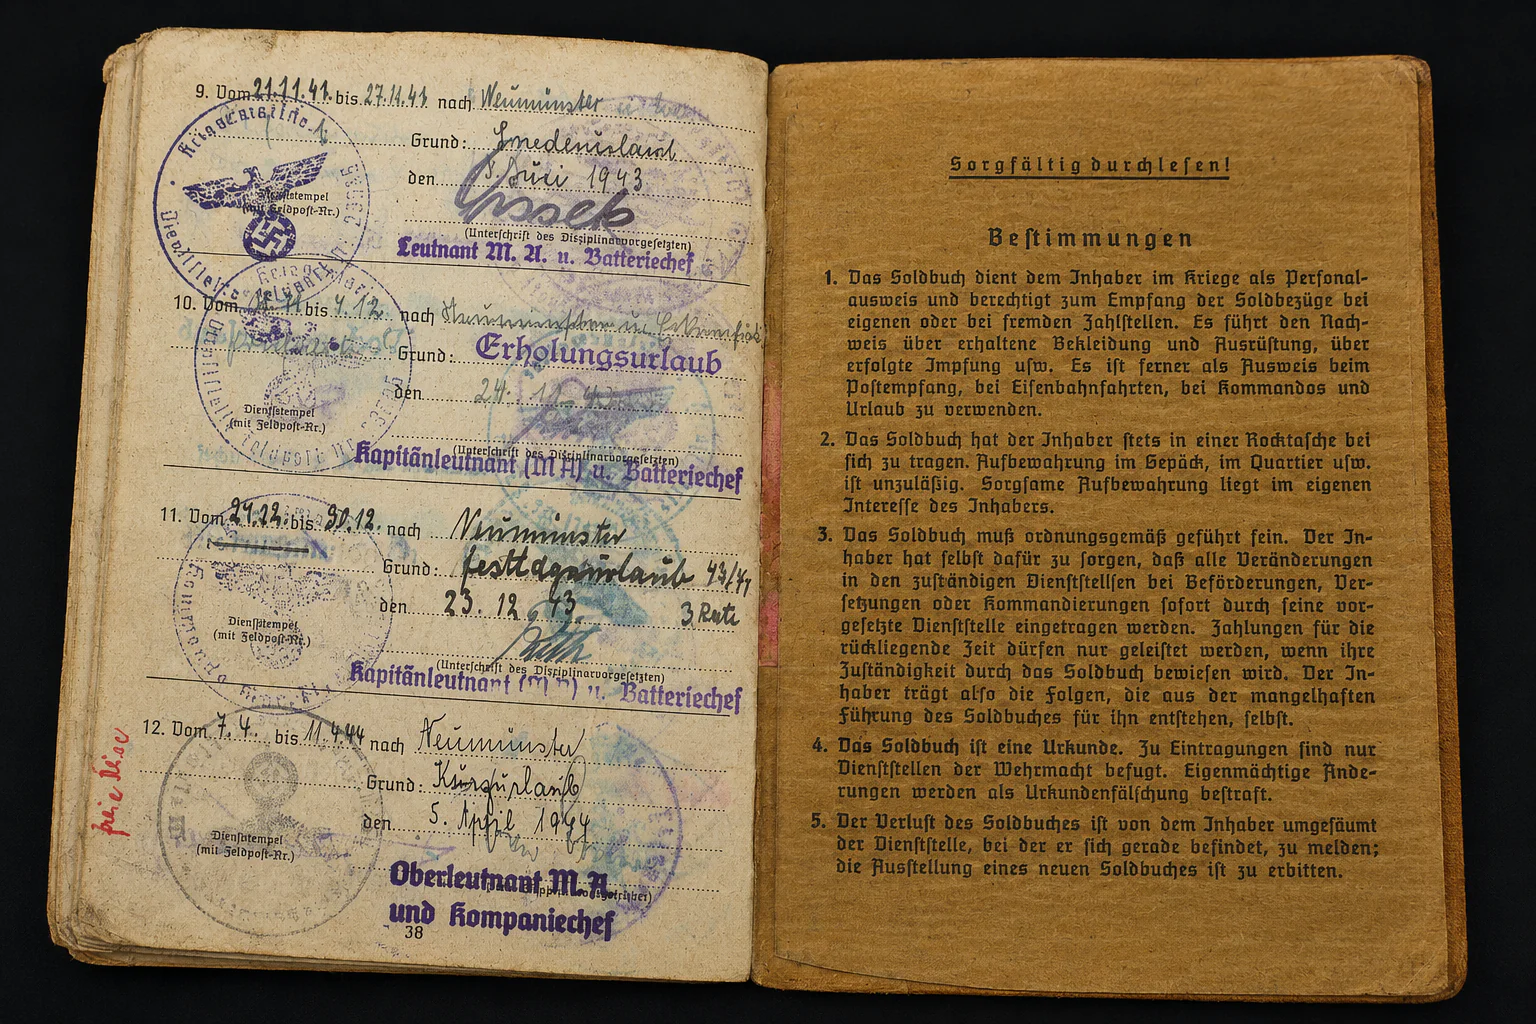 9. Vom 21.11.41. bis 27.11.41. nach Neumünster
Grund:
den Juli 1943
Dienststempel
(mit Feldpost-Nr.)
(Unterschrift des Disziplinarvorgesetzten)
Leutnant M. A. u. Batteriechef
10. Vom bis 4.12. nach
Grund: Erholungsurlaub
den 24.
Dienststempel
(mit Feldpost-Nr.)
(Unterschrift des Disziplinarvorgesetzten)
Kapitänleutnant (MA) u. Batteriechef
11. Vom bis 30.12. nach Neumünster
Grund: festtagsurlaub
den 23. 12 43. 3 Rate
Dienststempel
(mit Feldpost-Nr.)
(Unterschrift des Disziplinarvorgesetzten)
Kapitänleutnant u. Batteriechef
12. Vom 7.4. bis 11.4.44 nach Neumünster
Grund: Kurzurlaub
den 5. April 1944
Dienststempel
(mit Feldpost-Nr.)
Oberleutnant M. A.
und Kompaniechef
38
freie Reise
Sorgfältig durchlesen!
Bestimmungen
1. Das Soldbuch dient dem Inhaber im Kriege als Personal-
ausweis und berechtigt zum Empfang der Soldbezüge bei
eigenen oder bei fremden Zahlstellen. Es führt den Nach-
weis über erhaltene Bekleidung und Ausrüstung, über
erfolgte Impfung usw. Es ist ferner als Ausweis beim
Postempfang, bei Eisenbahnfahrten, bei Kommandos und
Urlaub zu verwenden.
2. Das Soldbuch hat der Inhaber stets in einer Rocktasche bei
sich zu tragen. Aufbewahrung im Gepäck, im Quartier usw.
ist unzuläßig. Sorgsame Aufbewahrung liegt im eigenen
Interesse des Inhabers.
3. Das Soldbuch muß ordnungsgemäß geführt sein. Der In-
haber hat selbst dafür zu sorgen, daß alle Veränderungen
in den zuständigen Dienststellsen bei Beförderungen, Ver-
setzungen oder Kommandierungen sofort durch seine vor-
gesetzte Dienststelle eingetragen werden. Zahlungen für die
rückliegende Zeit dürfen nur geleistet werden, wenn ihre
Zuständigkeit durch das Soldbuch bewiesen wird. Der In-
haber trägt also die Folgen, die aus der mangelhaften
Führung des Soldbuches für ihn entstehen, selbst.
4. Das Soldbuch ist eine Urkunde. Zu Eintragungen sind nur
Dienststellen der Wehrmacht befugt. Eigenmächtige Ände-
rungen werden als Urkundenfälschung bestraft.
5. Der Verlust des Soldbuches ist von dem Inhaber umgesäumt
der Dienststelle, bei der er sich gerade befindet, zu melden;
die Ausstellung eines neuen Soldbuches ist zu erbitten.